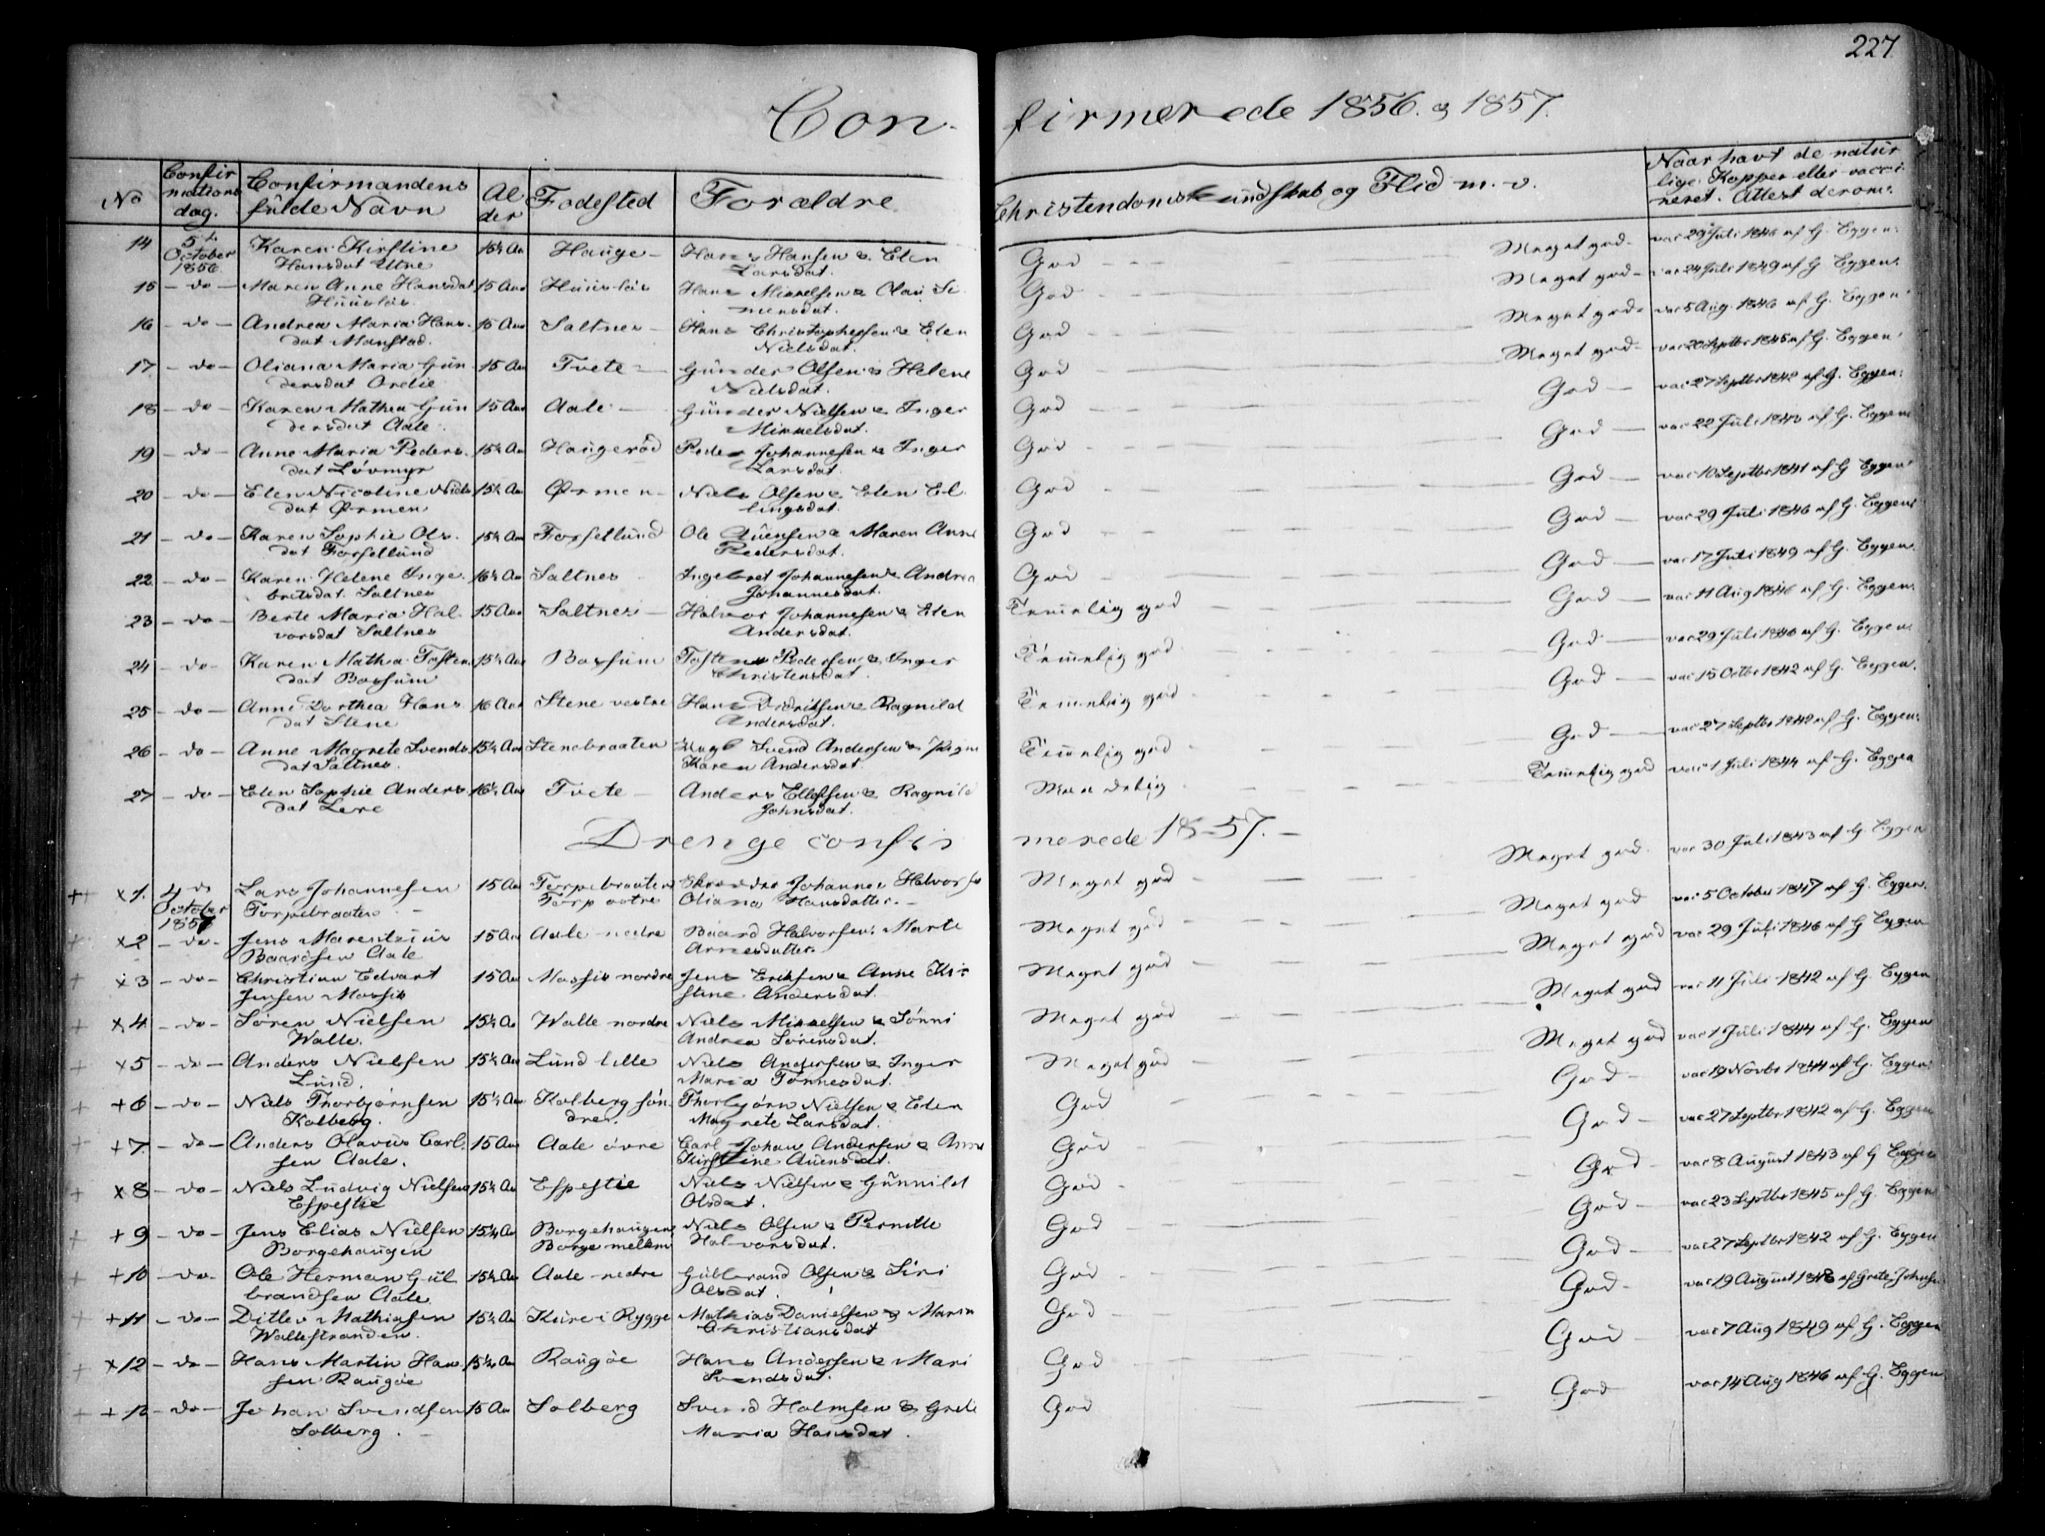 227.
Confirmerede 1856. og 1857.
No
Confirmations dag.
Confirmandens fulde Navn
Alder
Fødested
Forældre
Christendomskundskab og Flid m. v.
Naar havt de naturlige Kopper eller vaccineret. Attest derom.
14 5te October 1856 Karen Kirstine Hansdat 15½ Aar Hauge Hans Hansen & Elen Larsdat. God Meget god vac 29 Juli 1846 af G. Eggen.
15 do Maren Anne Hansdat Huusløs 15 Aar Huusløs Hans Mikkelsen & God Meget god vac 24 Juli 1849 af G. Eggen.
16 do Andrea Maria Hansdat 15 Aar Saltnes Hans Christophersen & Elen Nielsdat. God Meget god vac 5 Aug. 1846 af G. Eggen
17 do Oliana Maria Gundersdat 15 Aar Tvete Gunder Olsen & Helene Nielsdat. God Meget god vac 20 Septbr 1845 af G. Eggen
18 do Karen Mathea Gundersdat Aale 15 Aar Aale Gunder Nielsen & Inger Mikkelsdat. God God vac 27 Septbr 1842 af G. Eggen.
19 do Anne Maria Pedersdat Løvmyr 15½ Aar Haugerød Peder Johannesen & Inger Larsdat. God God vac 22 Juli 1846 af G. Eggen
20 do Elen Nicoline Nielsdat Ørmen 15½ Aar Ørmen Niels Olsen & Elen Ellingsdat. God God vac 10 Septbr 1841 af G. Eggen
21 do Karen Sophie Olsdat Fossellund 15½ Aar Fossellund Ole Auensen & Maren Anne Pedersdat. God God vac 29 Juli 1846 af G. Eggen
22 do Karen Helene Ingebritsdat. Saltnes 16½ Aar Saltnes Ingebret Johannesen & Andrea Johannesdat. God God vac 17 Juli 1849 af G. Eggen.
23 do Berte Maria Halvorsdat Saltnes 15 Aar Saltnes Halvor Johannesen & Elen Andersdat. Temmelig god God vac 11 Aug 1846 af G. Eggen.
24 do Karen Mathea Tostensdat Bossum 15½ Aar Bossum Tosten Pedersen & Inger Christensdat. Temmelig god God vac 29 Juli 1846 af G. Eggen.
25 do Anne Dorthea Hansdat Stene 16 Aar Stene vestre Hans Didriksen & Ragnild Andersdat. Temmelig god God vac 15 Octbr 1842 af G. Eggen.
26 do Anne Magrete Svendsdat Saltnes. 15½ Aar Stenebraaten Ungk Svend Andersen & Pigen Karen Andersdat Temmelig god God vac 27 Septbr 1842 af G. Eggen.
27 do Elen Sophie Andersdat Lere 16½ Aar Tvete Anders Ellefsen & Ragnild Johnsdat. Maadelig Temmelig god vac 1 Juli 1844 af G. Eggen
Drenge confirmerede 1857.
×1. 4de October 1857 Lars Johannesen Torpebraaten 15 Aar Torpebraaten Torp østre Skrædder Johannes Halvorsen Oliana Hansdatter. Meget god Meget god vac 30 Juli 1843 af G. Eggen
×2 do Jens Marentius Baardsen Aale 15 Aar Aale nedre Baard Halvorsen. Marte Arnesdatter Meget god Meget god vac 5 October 1847 af G. Eggen.
×3 do Christian Edvart Jensen Mossik 15 Aar Mossik nordre Jens Eriksen & Anne Kirstine Andersdat. Meget god Meget god vac 29 Juli 1846 af G. Eggen
×4 do Søren Nielsen Walle. 15½ Aar Walle nordre Niels Mikkelsen & Sønni Andrea Sørensdat. Meget god Meget god vac 11 Juli 1842 af G. Eggen
×5 do Anders Nielsen Lund. 15½ Aar Lund lille Niels Andersen & Inger Maria Tønnesdat. Meget god Meget god vac 1 Juli 1844 af G. Eggen
+6 do Niels Thorbjørnsen Kolberg. 15½ Aar Kolberg søndre. Thorbjørn Nielsen & Elen Magrete Larsdat. God God vac 19 Novbr 1844 af G. Eggen
+7 do Anders Olavus Carlsen Aale. 15 Aar Aale øvre Carl Johan Andersen & Anne Kirstine Auensdat. God God vac 27 Septbr 1842 af G. Eggen
×8 do Niels Ludvig Nielsen Espestie 15½ Aar Espestie Niels Nielsen & Gunnild Olsdat. God God vac 8 August 1843 af G. Eggen
+9 do Jens Elias Nielsen Borgehaugen 15½ Aar Borgehaugen Borge mellem Niels Olsen & Pernille Halvorsdat. God God vac 23 Septbr 1845 af G. Eggen
+10 do Ole Herman Gulbrandsen Aale. 15½ Aar Aale nedre Gulbrand Olsen & Siri Olsdat. God God vac 27 Septbr 1842 af G. Eggen
+11 do Ditlev Mathiasen Wallestranden. 15½ Aar Kure i Rygge Mathias Danielsen & Maren Christiansdat God God vac 19 August 1848 af Grete Johnsen
×12 do Hans Martin Hansen Raugøe 15½ Aar Raugøe Hans Andersen & Mari Svendsdat. God God vac 7 Aug 1849 af G. Eggen
+13 do Johan Svendsen Solberg. 15 Aar Solberg Svend Holmsen & Grete Maria Hansdat. God God vac 14 Aug 1846 af G. Eggen